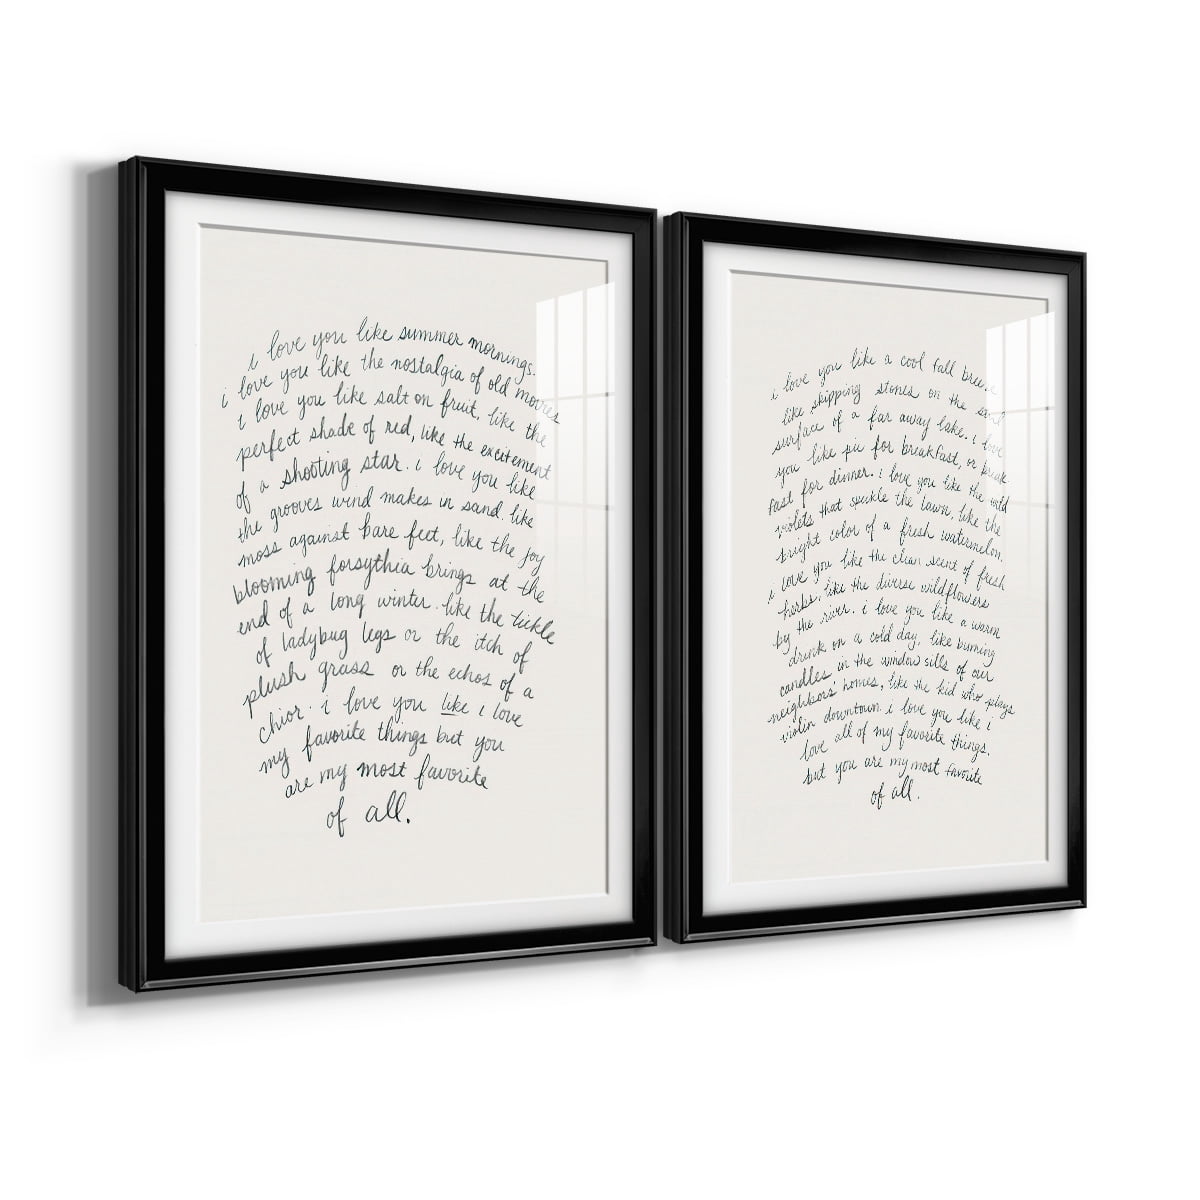 i love you like summer mornings.
i love you like the nostalgia of old movies
i love you like salt on fruit, like the
perfect shade of red, like the excitement
of a shooting star. i love you like
the grooves wind makes in sand. like
moss against bare feet, like the joy
blooming forsythia brings at the
end of a long winter. like the tickle
of ladybug legs or the itch of
plush grass or the echos of a
chior. i love you like i love
my favorite things but you
are my most favorite
of all.
i love you like a cool fall breeze
like skipping stones on the
surface of a far away lake. i love
you like pie for breakfast, or break
fast for dinner. i love you like the wild
violets that speckle the lawn, like the
bright color of a fresh watermelon.
i love you like the clean scent of fresh
herbs. like the diverse wildflowers
by the river. i love you like a warm
drink on a cold day, like burning
candles in the window sills of our
neighbors' homes, like the kid who plays
violin downtown. i love you like i
love all of my favorite things.
but you are my most favorite
of all.